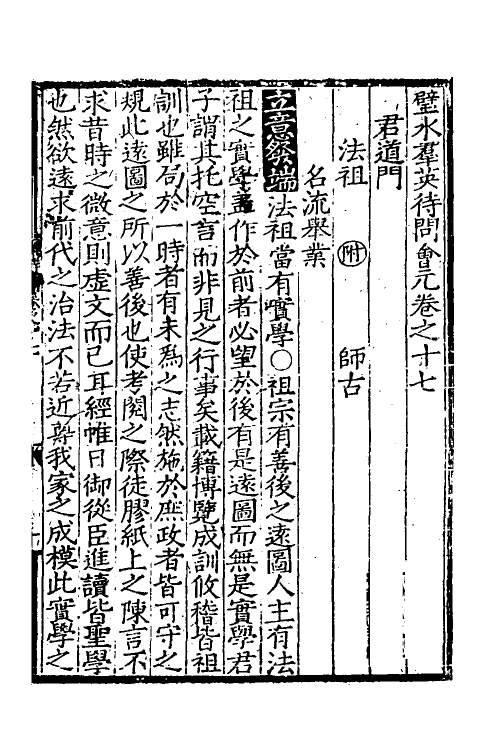 璧水羣英待問會元卷之十七
君道門
法祖 附 師古
名流舉業
立意發端 法祖當有實學○祖宗有善後之遠圖人主有法
祖之實學盖作於前者必望於後有是遠圖而無是實學君
子謂其托空言而非見之行事矣載籍博覽成訓攸稽皆祖
訓也雖局於一時者有未爲之志然施於庶政者皆可守之
規此遠圖之所以善後也使考閱之際徒膠紙上之陳言不
求昔時之微意則虛文而已耳經帷日御從臣進讀皆聖學
也然欲遠求前代之治法不若近取我家之成模此實學之